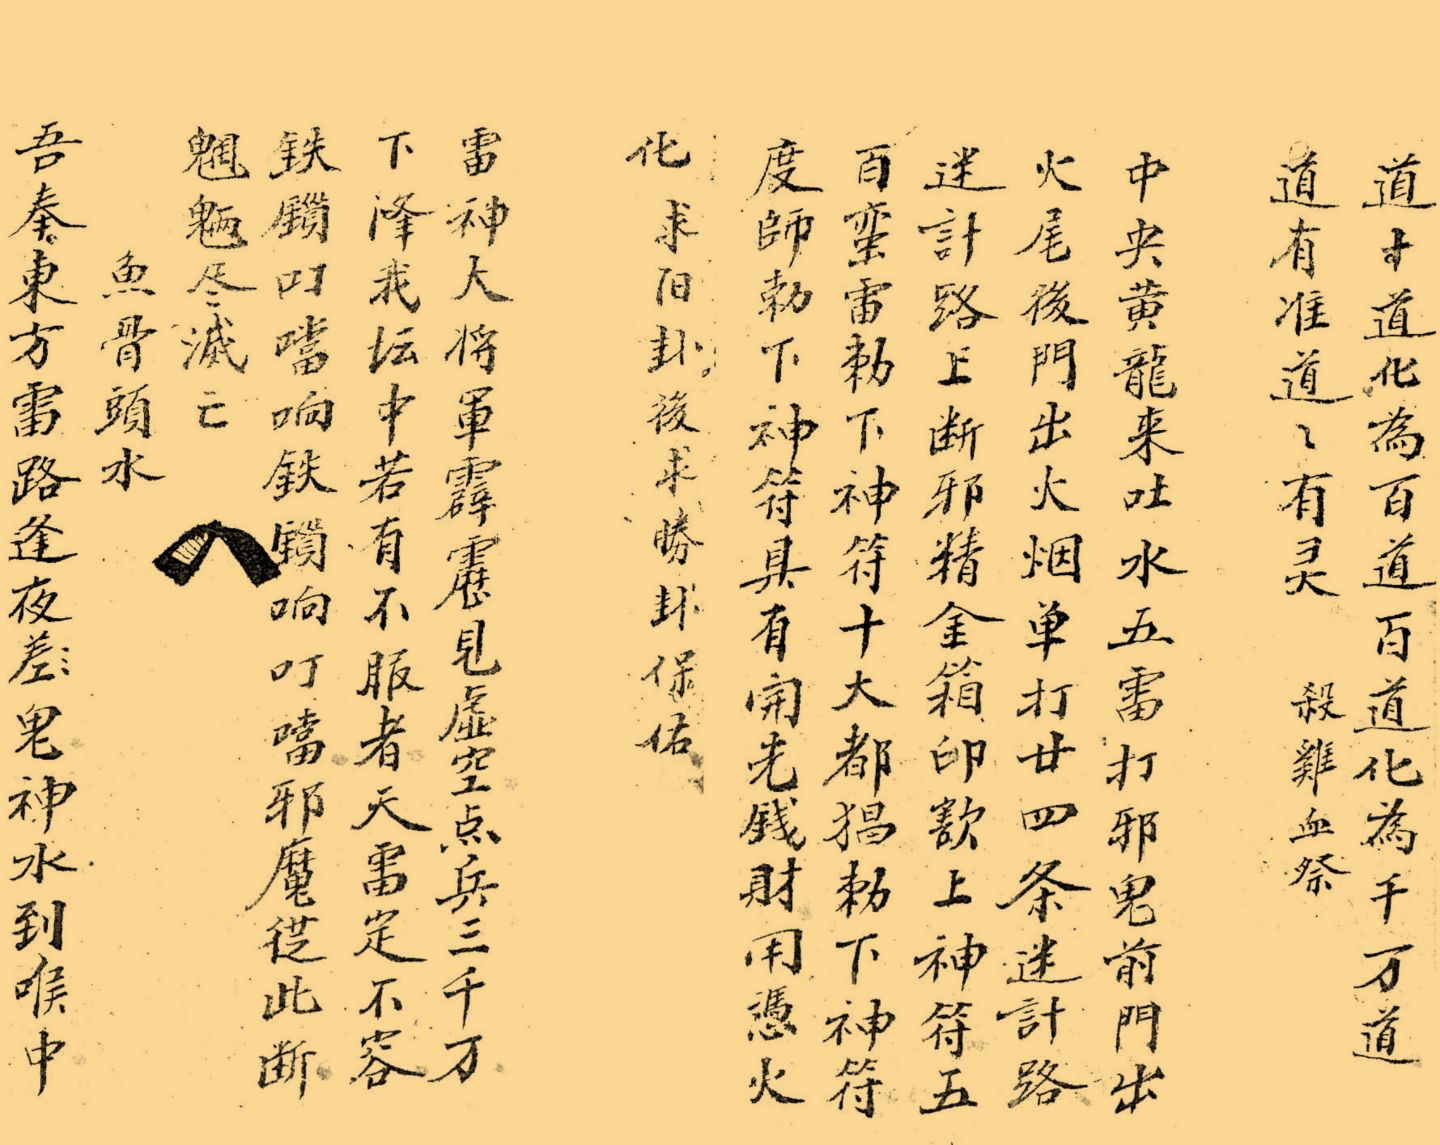 道十道化為百道百道化為千万道
道有准道〻有灵 殺雞血祭
中央黄龍来吐水五雷打邪鬼前門出
火尾後門出火烟单打廿四条迷計路
迷計路上断邪精金箱印歘上神符五
百蛮雷勅下神符十大都猖勅下神符
度師勅下神符具有開光錢財用憑火
化求阳卦後求勝卦保佑
雷神大将軍霹靂見虛空点兵三千万
下泽我坛中若有不服者天雷定不容
鉄鎖叮噹响鉄鎖响叮噹邪魔従此断
魍魎尽滅亡
魚骨頭水
吾奉東方雷路逢夜差〻鬼神水到喉中